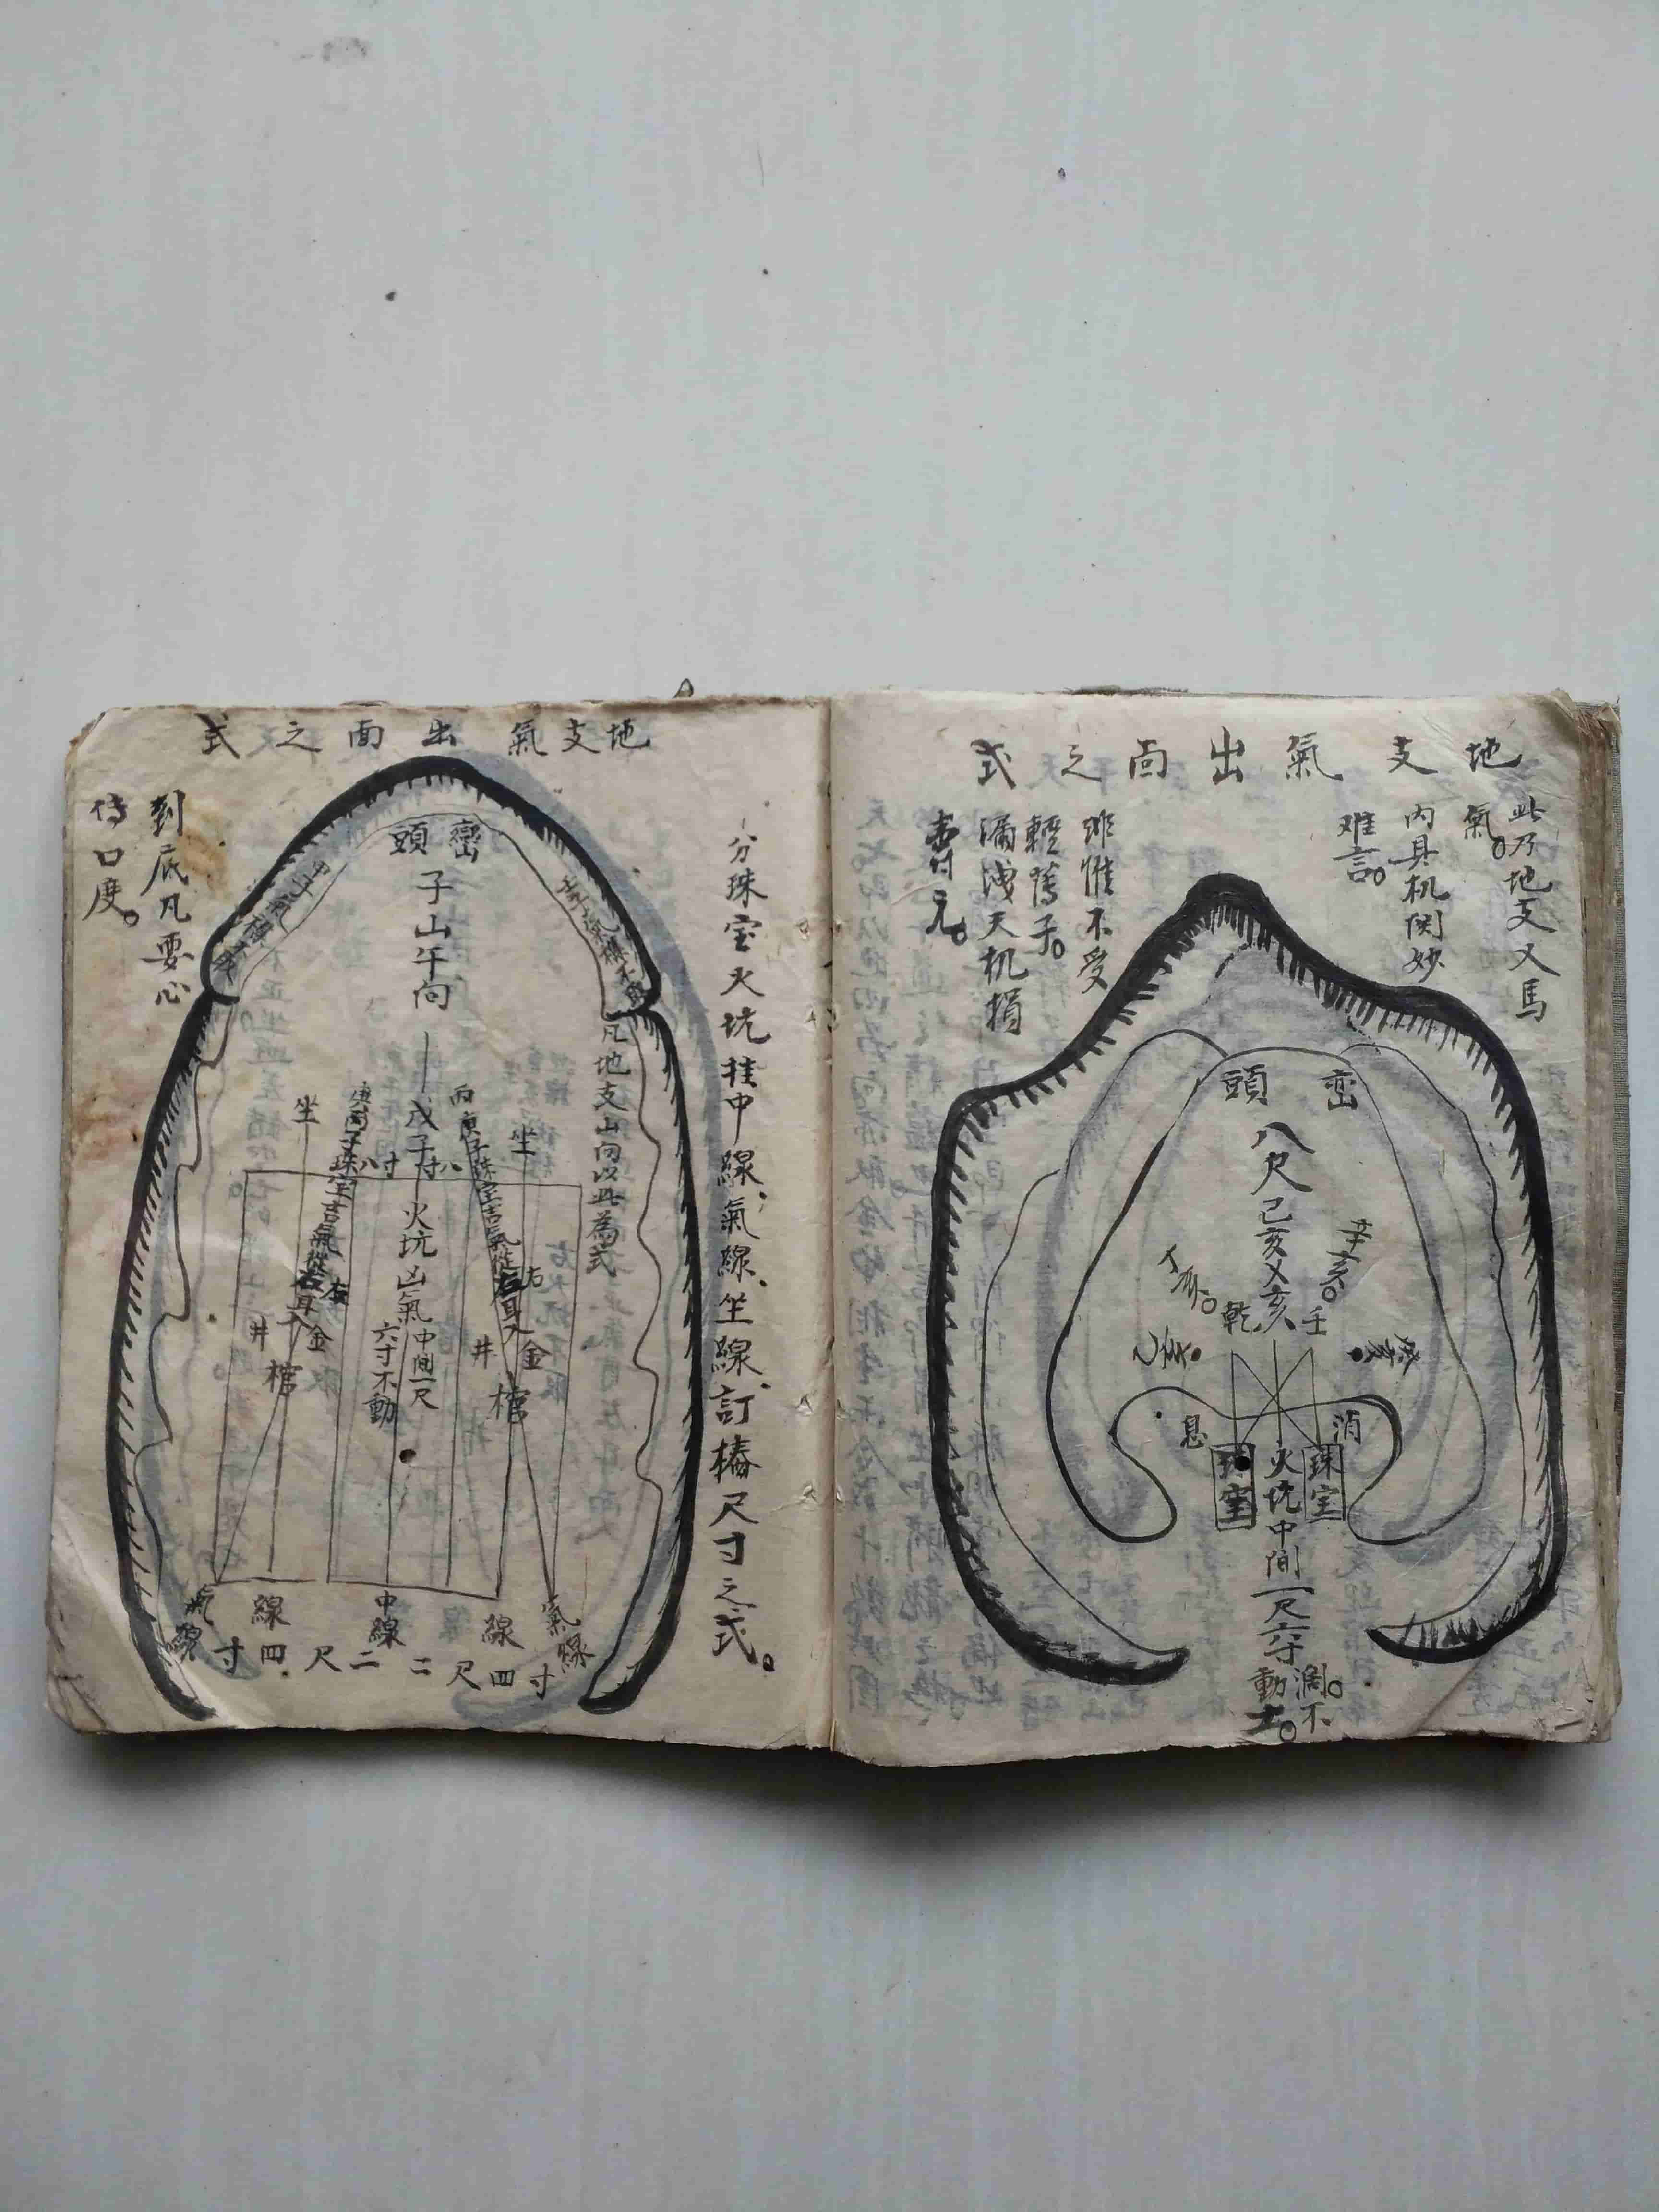 地支氣出面之式
此乃地支又馬
氣。
內具机関妙
难言。
惟不受
輕
漏洩天机損
壽元。
巒頭
八尺
己亥乂亥
辛亥。
乾亥壬
息
消
珠宝
火坑中间一尺六寸
珠宝
濶。不
動土。
地支氣出面之式
分珠宝火坑挂中線,氣線,坐線,訂樁尺寸之式。
巒頭
子山午向
戊子
凡地支山向以此為式
丙庚子珠宝吉氣從右耳入
坐
坐
八寸
寸八
火坑凶氣中间一尺
六寸不動
金
井
棺
金
井
棺
氣線
線
中線
線
氣線
寸四尺二
二尺四寸
到底凡要心
传口度。